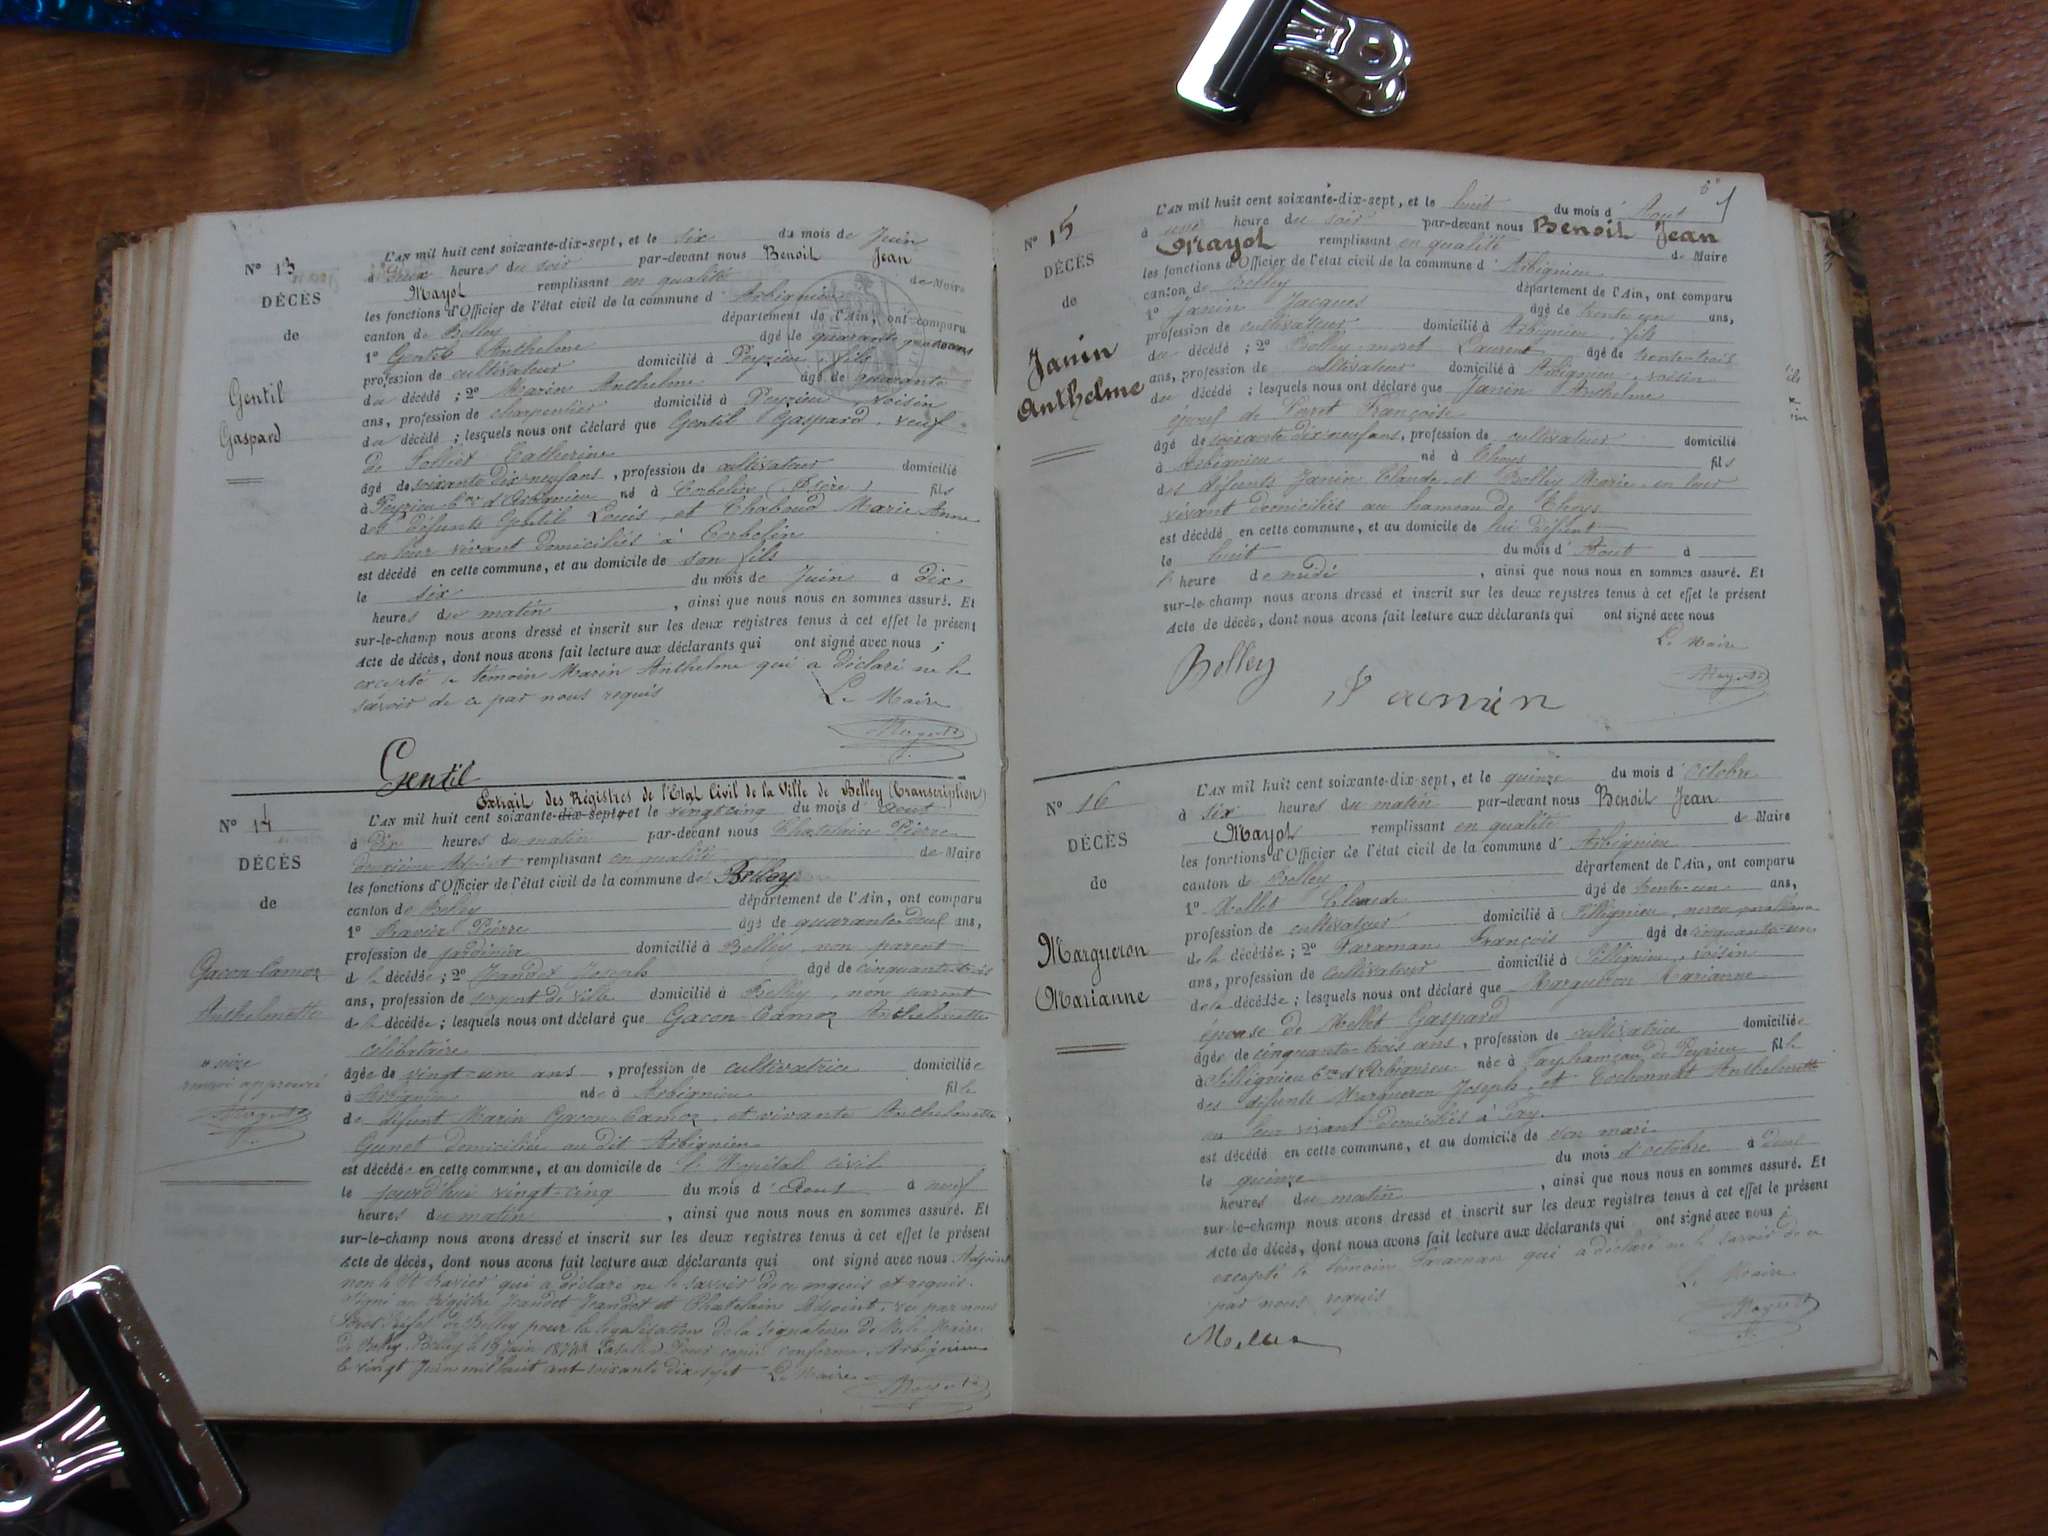 Nº 13
DÉCÈS
de
Gentil
Gaspard
L'AN mil huit cent soixante-dix-sept, et le six du mois de Juin
à heures du soir par-devant nous Benoit Jean
Mayol remplissant en qualité de Maire
les fonctions d'Officier de l'état civil de la commune d'Arbignieu
canton de Belley département de l'Ain, ont comparu
1º Gentil Anthelme âgé de quarante ans
profession de cultivateur domicilié à Peyzieu, fils
du décédé ; 2º Marin Anthelme âgé de quarante
ans, profession de charpentier domicilié à Peyzieu, voisin
du décédé ; lesquels nous ont déclaré que Gentil Gaspard, veuf
de Folliet Catherine
âgé de soixante dix-neuf ans, profession de cultivateur domicilié
à Peyzieu Cne d'Arbignieu né à Corbelin (Isère) fils
des défunts Gentil Louis, et Chaboud Marie Anne
en leur vivant domiciliés à Corbelin
est décédé en cette commune, et au domicile de son fils
le six du mois de Juin à dix
heures du matin, ainsi que nous nous en sommes assuré. Et
sur-le-champ nous avons dressé et inscrit sur les deux registres tenus à cet effet le présent
Acte de décès, dont nous avons fait lecture aux déclarants qui ont signé avec nous ;
excepté le témoin Marin Anthelme qui a déclaré ne le
savoir de ce par nous requis Le Maire
Gentil
Nº 14
DÉCÈS
de
Gacon-Camoz
Anthelmette
Extrait des Régistres de l'Etat Civil de la Ville de Belley (Transcription)
L'AN mil huit cent soixante-dix-sept, et le vingt cinq du mois d'Aout
à Dix heures du matin par-devant nous Chatelain Pierre
deuxième Adjoint remplissant en qualité de Maire
les fonctions d'Officier de l'état civil de la commune de Belley
canton de Belley département de l'Ain, ont comparu
1º Ravier Pierre âgé de quarante-deux ans,
profession de jardinier domicilié à Belley, non parent
de la décédée ; 2º Jeandet Joseph âgé de cinquante-trois
ans, profession de sergent de ville domicilié à Belley, non parent
de la décédée ; lesquels nous ont déclaré que Gacon-Camoz Anthelmette
célibataire
âgée de vingt-un ans, profession de cultivatrice domiciliée
à Arbignieu née à Arbignieu fille
de défunt Marin Gacon-Camoz, et vivante Anthelmette
Gunet domiciliée au dit Arbignieu
est décédée en cette commune, et au domicile de l'Hopital civil
le jourd'hui vingt-cinq du mois d'Aout à neuf
heures du matin, ainsi que nous nous en sommes assuré. Et
sur-le-champ nous avons dressé et inscrit sur les deux registres tenus à cet effet le présent
Acte de décès, dont nous avons fait lecture aux déclarants qui ont signé avec nous Adjoint
non le Sr Ravier qui a déclaré ne le savoir de ce enquis et requis.
Signé au régistre Jeandet et Chatelain Adjoint. vu par nous
Sous Préfet de Belley pour la légalisation de la signature de Mr le Maire
de Belley. Belley le 19 Juin Pour copie conforme, Arbignieu
le vingt Juin mil huit cent soixante dix sept Le Maire
Nº 15
DÉCÈS
de
Janin
Anthelme
L'AN mil huit cent soixante-dix-sept, et le huit du mois d'Aout
à une heure du soir par-devant nous Benoit Jean
Mayol remplissant en qualité de Maire
les fonctions d'Officier de l'état civil de la commune d'Arbignieu
canton de Belley département de l'Ain, ont comparu
1º Janin Jacques âgé de trente un ans,
profession de cultivateur domicilié à Arbignieu, fils
du décédé ; 2º Belley-moret Laurent âgé de trente-trois
ans, profession de cultivateur domicilié à Arbignieu, voisin
du décédé ; lesquels nous ont déclaré que Janin Anthelme
époux de Françoise
âgé de soixante dix-neuf ans, profession de cultivateur domicilié
à Arbignieu né à Thoys fils
des défunts Janin Claude et Belley Marie en leur
vivant domiciliés au hameau de Thoys
est décédé en cette commune, et au domicile de lui défunt
le huit du mois d'Aout à
heure de midi, ainsi que nous nous en sommes assuré. Et
sur-le-champ nous avons dressé et inscrit sur les deux registres tenus à cet effet le présent
Acte de décès, dont nous avons fait lecture aux déclarants qui ont signé avec nous
Le Maire
Belley
Janin
Nº 16
DÉCÈS
de
Margueron
Marianne
L'AN mil huit cent soixante-dix-sept, et le quinze du mois d'octobre
à six heures du matin par-devant nous Benoit Jean
Mayol remplissant en qualité de Maire
les fonctions d'Officier de l'état civil de la commune d'Arbignieu
canton de Belley département de l'Ain, ont comparu
1º Mellet Claude âgé de trente-un ans,
profession de cultivateur domicilié à Sillignieu, neveu
de la décédée ; 2º Faraman François âgé de cinquante-un
ans, profession de cultivateur domicilié à Sillignieu, voisin
de la décédée ; lesquels nous ont déclaré que Margueron Marianne
épouse de Mellet Gaspard
âgée de cinquante-trois ans, profession de cultivatrice domiciliée
à Sillignieu Cne d'Arbignieu née à Fay hameau de Peyrieu fille
des défunts Margueron Joseph, et Cochonnat Anthelmette
en leur vivant domiciliés à Fay.
est décédé en cette commune, et au domicile de son mari
le quinze du mois d'octobre à deux
heures du matin, ainsi que nous nous en sommes assuré. Et
sur-le-champ nous avons dressé et inscrit sur les deux registres tenus à cet effet le présent
Acte de décès, dont nous avons fait lecture aux déclarants qui ont signé avec nous ;
excepté le témoin Faraman qui a déclaré ne le savoir de ce
par nous requis Le Maire